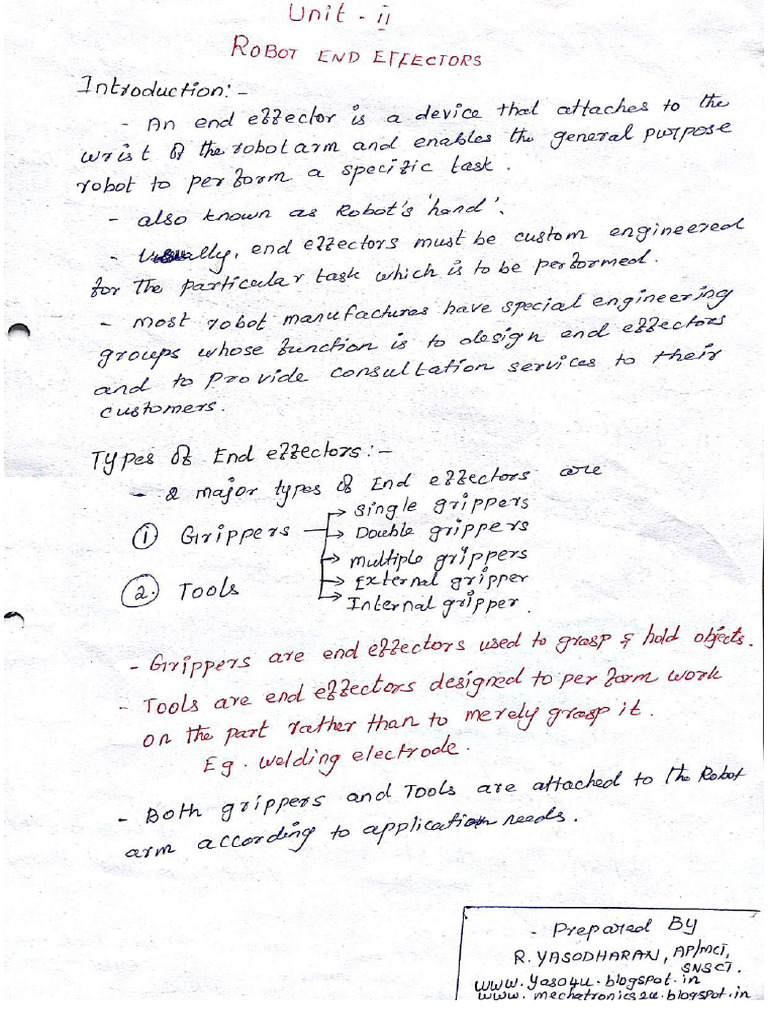 Unit - II
ROBOT END EFFECTORS
Introduction:-
- An end effector is a device that attaches to the
wrist of the robot arm and enables the general purpose
robot to perform a specific task.
- also known as Robot's 'hand'.
- Usually, end effectors must be custom engineered
for the particular task which is to be performed.
- most robot manufactures have special engineering
groups whose function is to design end effectors
and to provide consultation services to their
customers.
Types of End effectors:-
- 2 major types of End effectors are
① Grippers → Single grippers
→ Double grippers
→ multiple grippers
② Tools → External gripper
→ Internal gripper.
- Grippers are end effectors used to grasp & hold objects.
- Tools are end effectors designed to perform work
on the part rather than to merely grasp it.
Eg. welding electrode.
- Both grippers and Tools are attached to the Robot
arm according to application needs.
- Prepared By
R. YASODHARAN, AP/MCT,
SNSCT.
www.yaso4u.blogspot.in
www.mechatronics2u.blogspot.in